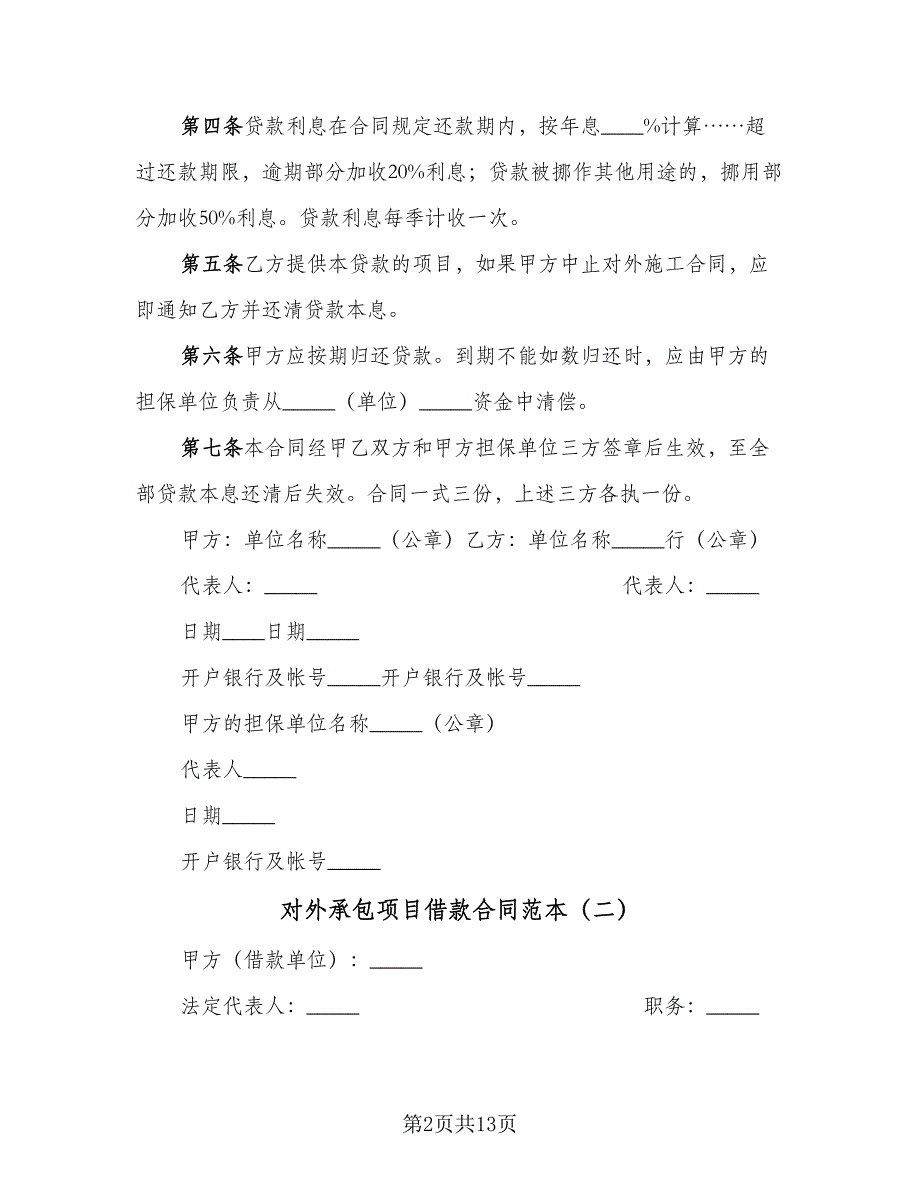 第四条贷款利息在合同规定还款期内，按年息____%计算……超
过还款期限，逾期部分加收20%利息；贷款被挪作其他用途的，挪用部
分加收50%利息。贷款利息每季计收一次。
第五条乙方提供本贷款的项目，如果甲方中止对外施工合同，应
即通知乙方并还清贷款本息。
第六条甲方应按期归还贷款。到期不能如数归还时，应由甲方的
担保单位负责从_____（单位）_____资金中清偿。
第七条本合同经甲乙双方和甲方担保单位三方签章后生效，至全
部贷款本息还清后失效。合同一式三份，上述三方各执一份。
甲方：单位名称_____（公章）乙方：单位名称_____行（公章）
代表人：_____ 代表人：_____
日期____日期_____
开户银行及帐号_____开户银行及帐号_____
甲方的担保单位名称_____（公章）
代表人_____
日期_____
开户银行及帐号_____
对外承包项目借款合同范本（二）
甲方（借款单位）：_____
法定代表人：_____ 职务：_____
第2页共13页